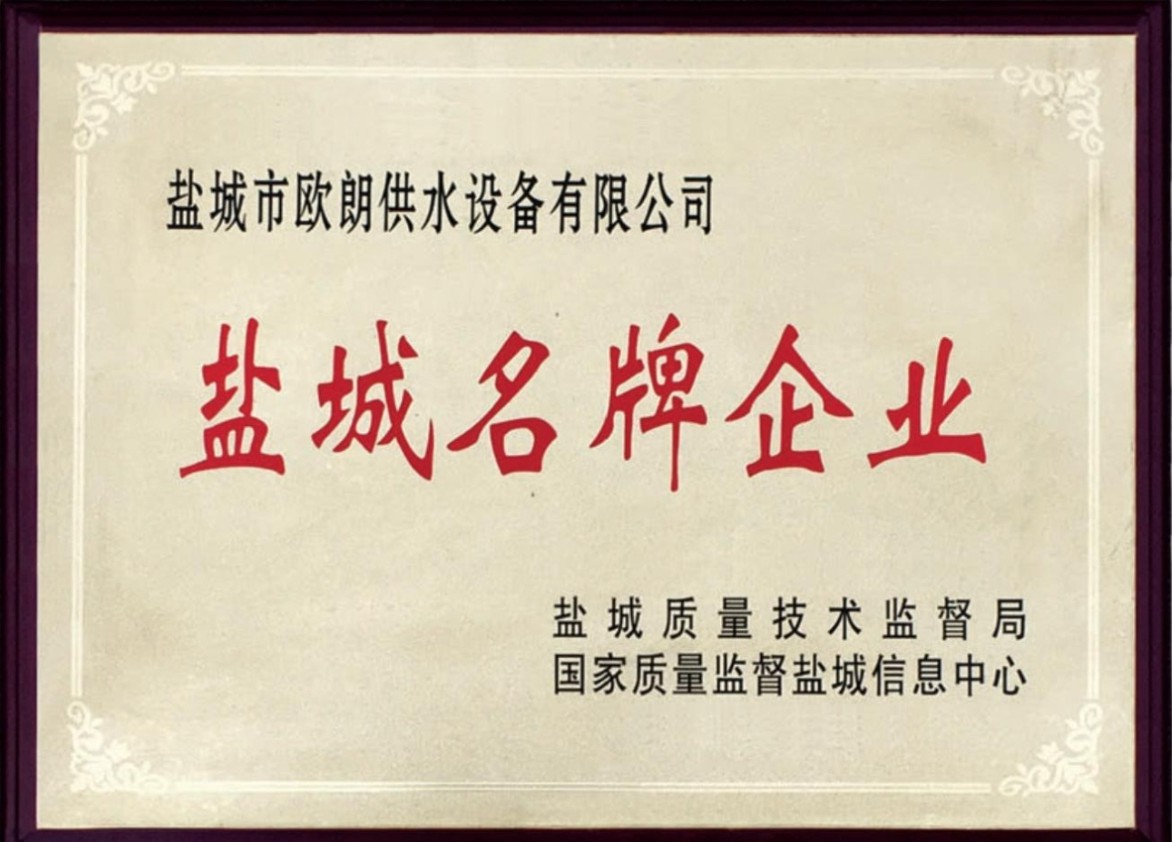 盐城市欧朗供水设备有限公司
盐城名牌企业
盐城质量技术监督局
国家质量监督盐城信息中心